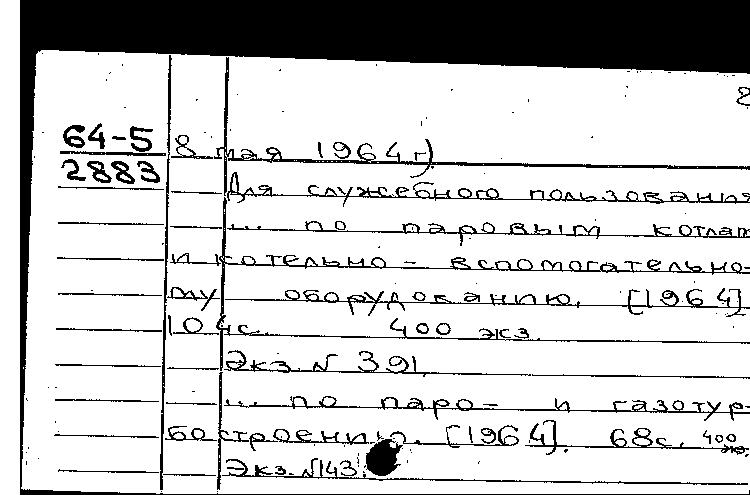 64-5
2883
8 мая 1964 г)
Для служебного пользования
... по паровым котлам
и котельно-вспомогательно-
му оборудованию. [1964]
104с. 400 экз.
Экз. № 391.
... по паро- и газотур-
бостроению. [1964]. 68с. 400 экз.
Экз. №143.